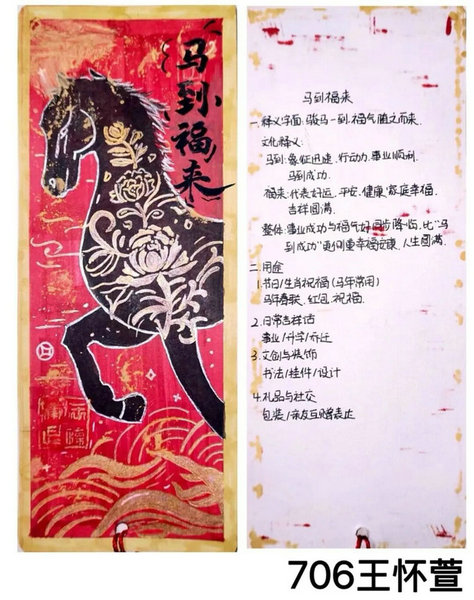 马到福来
马到福来
一.释义字面:骏马一到.福气随之而来.
文化释义:
马到:象征迅速.行动力.事业顺利.
马到成功.
福来:代表好运.平安.健康.家庭幸福.
吉祥圆满.
整体:事业成功与福气好同步降临.比"马
到成功"更侧重幸福安康.人生圆满.
二.用途
1.节日/生肖祝福(马年常用)
马年春联.红包.祝福.
2.日常吉祥话
事业/升学/乔迁
3.文创与装饰
书法/挂件/设计
4.礼品与社交
包装/亲友互赠表达
706王怀萱